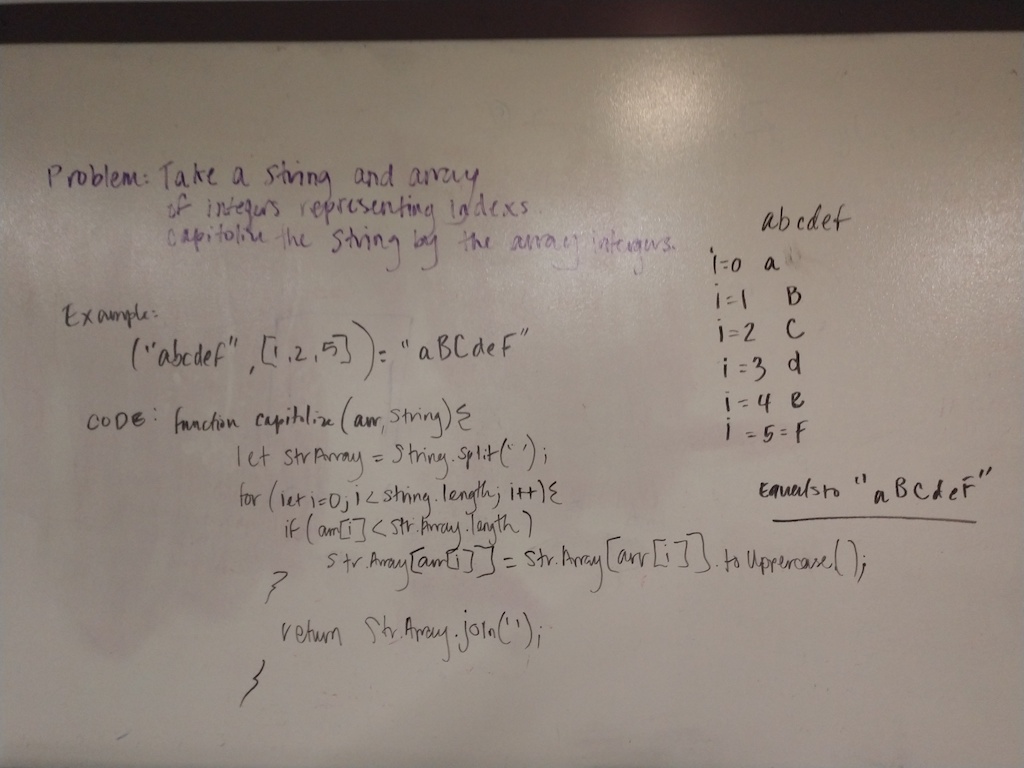 Problem: Take a string and array
of integers representing indexs
capitolize the string by the array intergers.
Example:
("abcdef", [1,2,5]) = "aBCdeF"
CODE: function capitolize(arr, string){
let strArray = string.split('');
for (let i=0; i < string.length; i++){
if (arr[i] < str.Array.length)
str.Array[arr[i]] = str.Array[arr[i]].toUppercase();
}
return Str.Array.join('');
}
abcdef
i=0 a
i=1 B
i=2 C
i=3 d
i=4 e
i=5=F
Equalsto "aBCdeF"